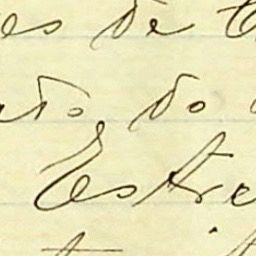 es de
ato do
Estre